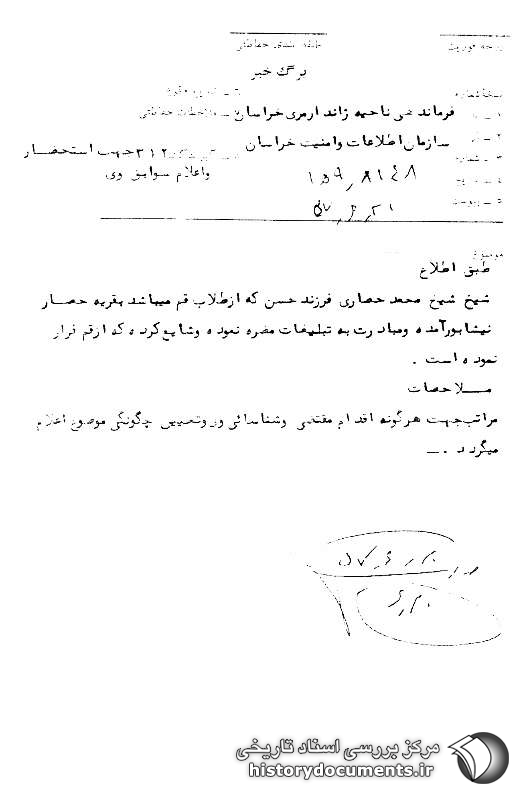 طبقه بندی حفاظتی
برگ خبر
فرماندهی ناحیه ژاندارمری خراسان
ملاحظات حفاظتی
سازمان اطلاعات وامنیت خراسان
۳۱۲ جهت استحضار
واعلام سوابق وی
۳ ـ شماره
۱۵۹٫۸۱۴۸
۵ ـ پیوست
۵۷٫۶٫۲۱
موضوع
طبق اطلاع
شیخ شیخ محمد حصاری فرزند حسن که ازطلاب قم میباشد بقریه حصار
نیشابورآمده ومبادرت به تبلیغات مضره نموده وشایع کرده که ازقم فرار
نموده است .
ملاحضات
مراتب جهت هرگونه اقدام مقتضی وشناسائی وروتعیین چگونگی موضوع اعلام
میگردد . ـ
مرکز بررسی اسناد تاریخی
historydocuments.ir